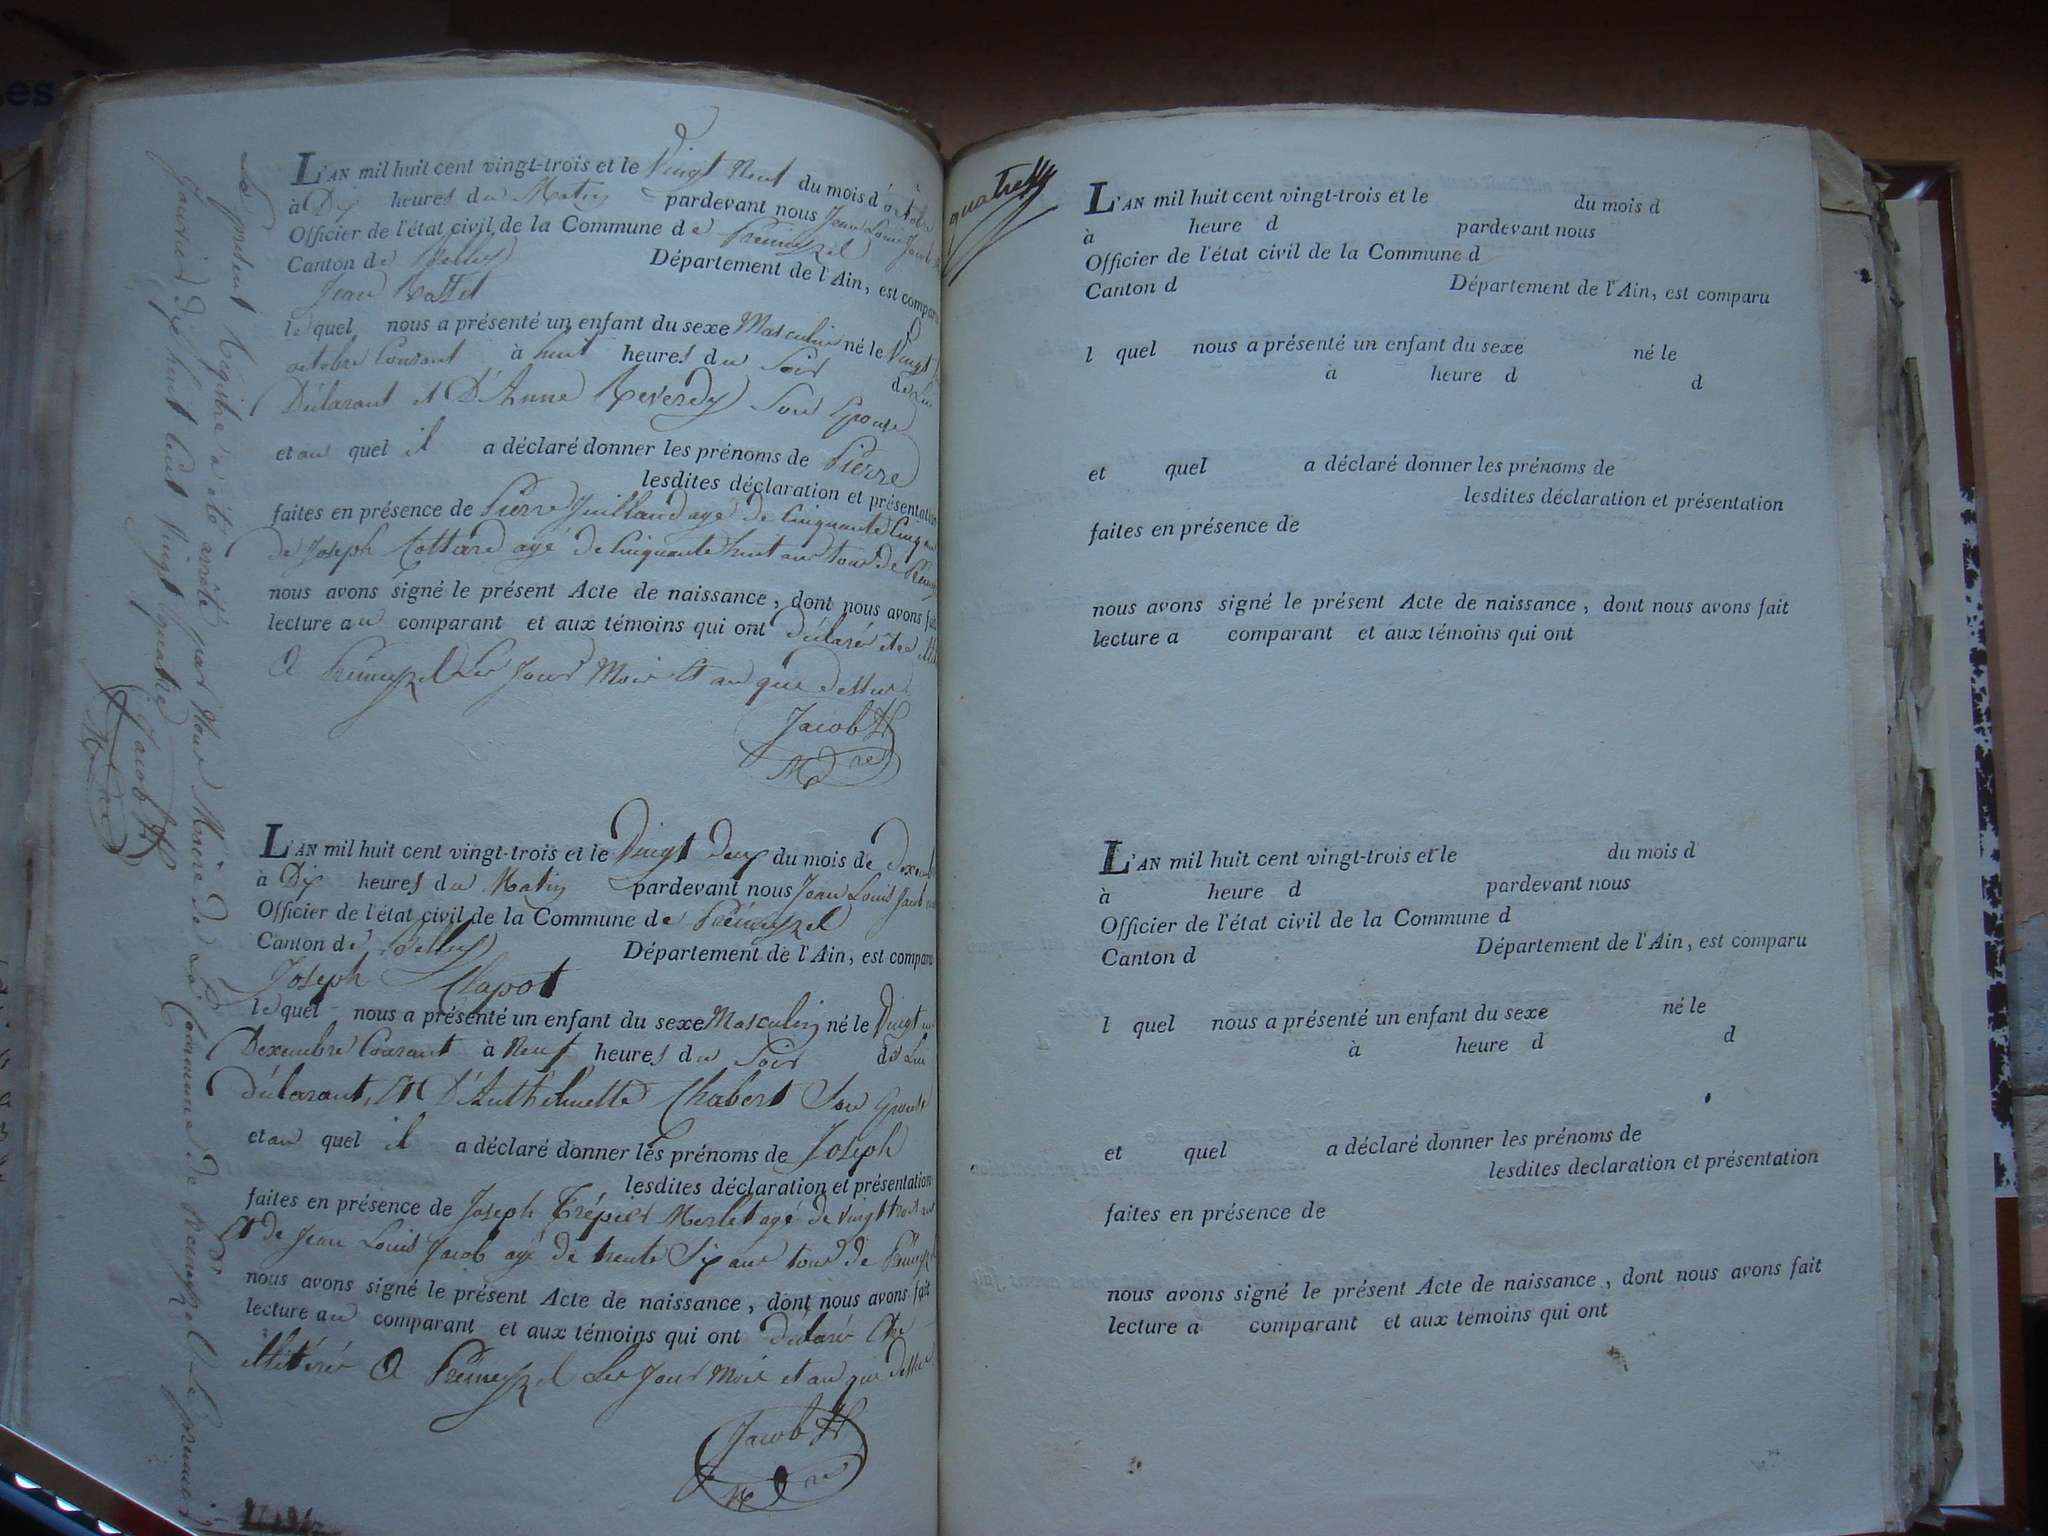 L'AN mil huit cent vingt-trois et le Vingt Neuf du mois d'octobre
à Dix heures du Matin pardevant nous Jean Louis Jacob
Officier de l'état civil de la Commune de Prémeyzel
Canton de Belley Département de l'Ain, est comparu
Jean
lequel nous a présenté un enfant du sexe Masculin né le Vingt
octobre Courant à huit heures du Soir de Lui
Déclarant et D'Anne Reverdy Son Epouse
et au quel il a déclaré donner les prénoms de Pierre
lesdites déclaration et présentation
faites en présence de Pierre Juilland agé de Cinquante Cinq
de Joseph Cottard agé de Cinquante huit ans tous de
nous avons signé le présent Acte de naissance, dont nous avons fait
lecture au comparant et aux témoins qui ont déclaré être
A Prémeyzel Les Jour Mois et an que dessus
Jacob
Le présent Régistre a été arrêté par Nous Maire de La Commune de Prémeyzel Le premier
Janvier Dix huit Cent Vingt quatre
Jacob
L'AN mil huit cent vingt-trois et le Vingt Deux du mois de Dexembre
à Dix heures du Matin pardevant nous Jean Louis Jacob
Officier de l'état civil de la Commune de Prémeyzel
Canton de Belley Département de l'Ain, est comparu
Joseph Clapot
lequel nous a présenté un enfant du sexe Masculin né le Vingt
Dexembre Courant à Neuf heures du Soir de Lui
déclarant, Et D'Anthelmette Chabert Son Epouse
et au quel il a déclaré donner les prénoms de Joseph
lesdites déclaration et présentation
faites en présence de Joseph Trépier Merlet agé de Vingt trois ans
Et de Jean Louis Jacob agé de trente Six ans tous de Prémeyzel
nous avons signé le présent Acte de naissance, dont nous avons fait
lecture au comparant et aux témoins qui ont déclaré être
illitérés A Prémeyzel Les Jour Mois et an que dessus
Jacob
quatre
L'AN mil huit cent vingt-trois et le du mois d
à heure d pardevant nous
Officier de l'état civil de la Commune d
Canton d Département de l'Ain, est comparu
l quel nous a présenté un enfant du sexe né le
à heure d d
et quel a déclaré donner les prénoms de
lesdites déclaration et présentation
faites en présence de
nous avons signé le présent Acte de naissance, dont nous avons fait
lecture a comparant et aux témoins qui ont
L'AN mil huit cent vingt-trois et le du mois d
à heure d pardevant nous
Officier de l'état civil de la Commune d
Canton d Département de l'Ain, est comparu
l quel nous a présenté un enfant du sexe né le
à heure d d
et quel a déclaré donner les prénoms de
lesdites declaration et présentation
faites en présence de
nous avons signé le présent Acte de naissance, dont nous avons fait
lecture a comparant et aux témoins qui ont